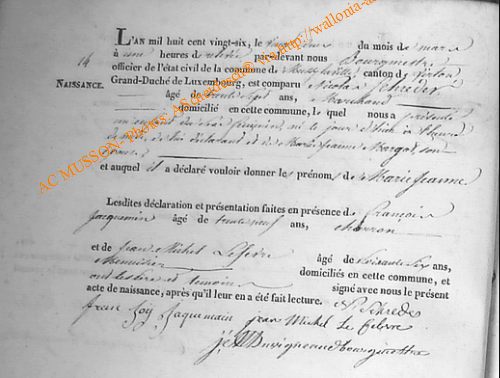 L'AN mil huit cent vingt-six, le vingt deux du mois de mars
14 à une heures de par-devant nous Bourgmestre
officier de l'état civil de la commune de canton de Virton
NAISSANCE. Grand-Duché de Luxembourg, est comparu Nicolas Schreder
âgé de trente sept ans, Marchand
domicilié en cette commune, le quel nous a présenté
un enfant du sexe féminin, né le jour d'hier à
de lui déclarant et de Marie Jeanne son
épouse
et auquel il a déclaré vouloir donner les prénoms de Marie Jeanne
Lesdites déclaration et présentation faites en présence de François
Jacquemin âgé de trente neuf ans,
et de Jean Michel Lefevre âgé de soixante six ans,
domiciliés en cette commune, et
ont les père et témoins signé avec nous le présent
acte de naissance, après qu'il leur en a été fait lecture. N Schreder
franc Jaquemain jean Michel Le febvre
AC MUSSON- Photos: AS Geneanet &
http://wallonia-a